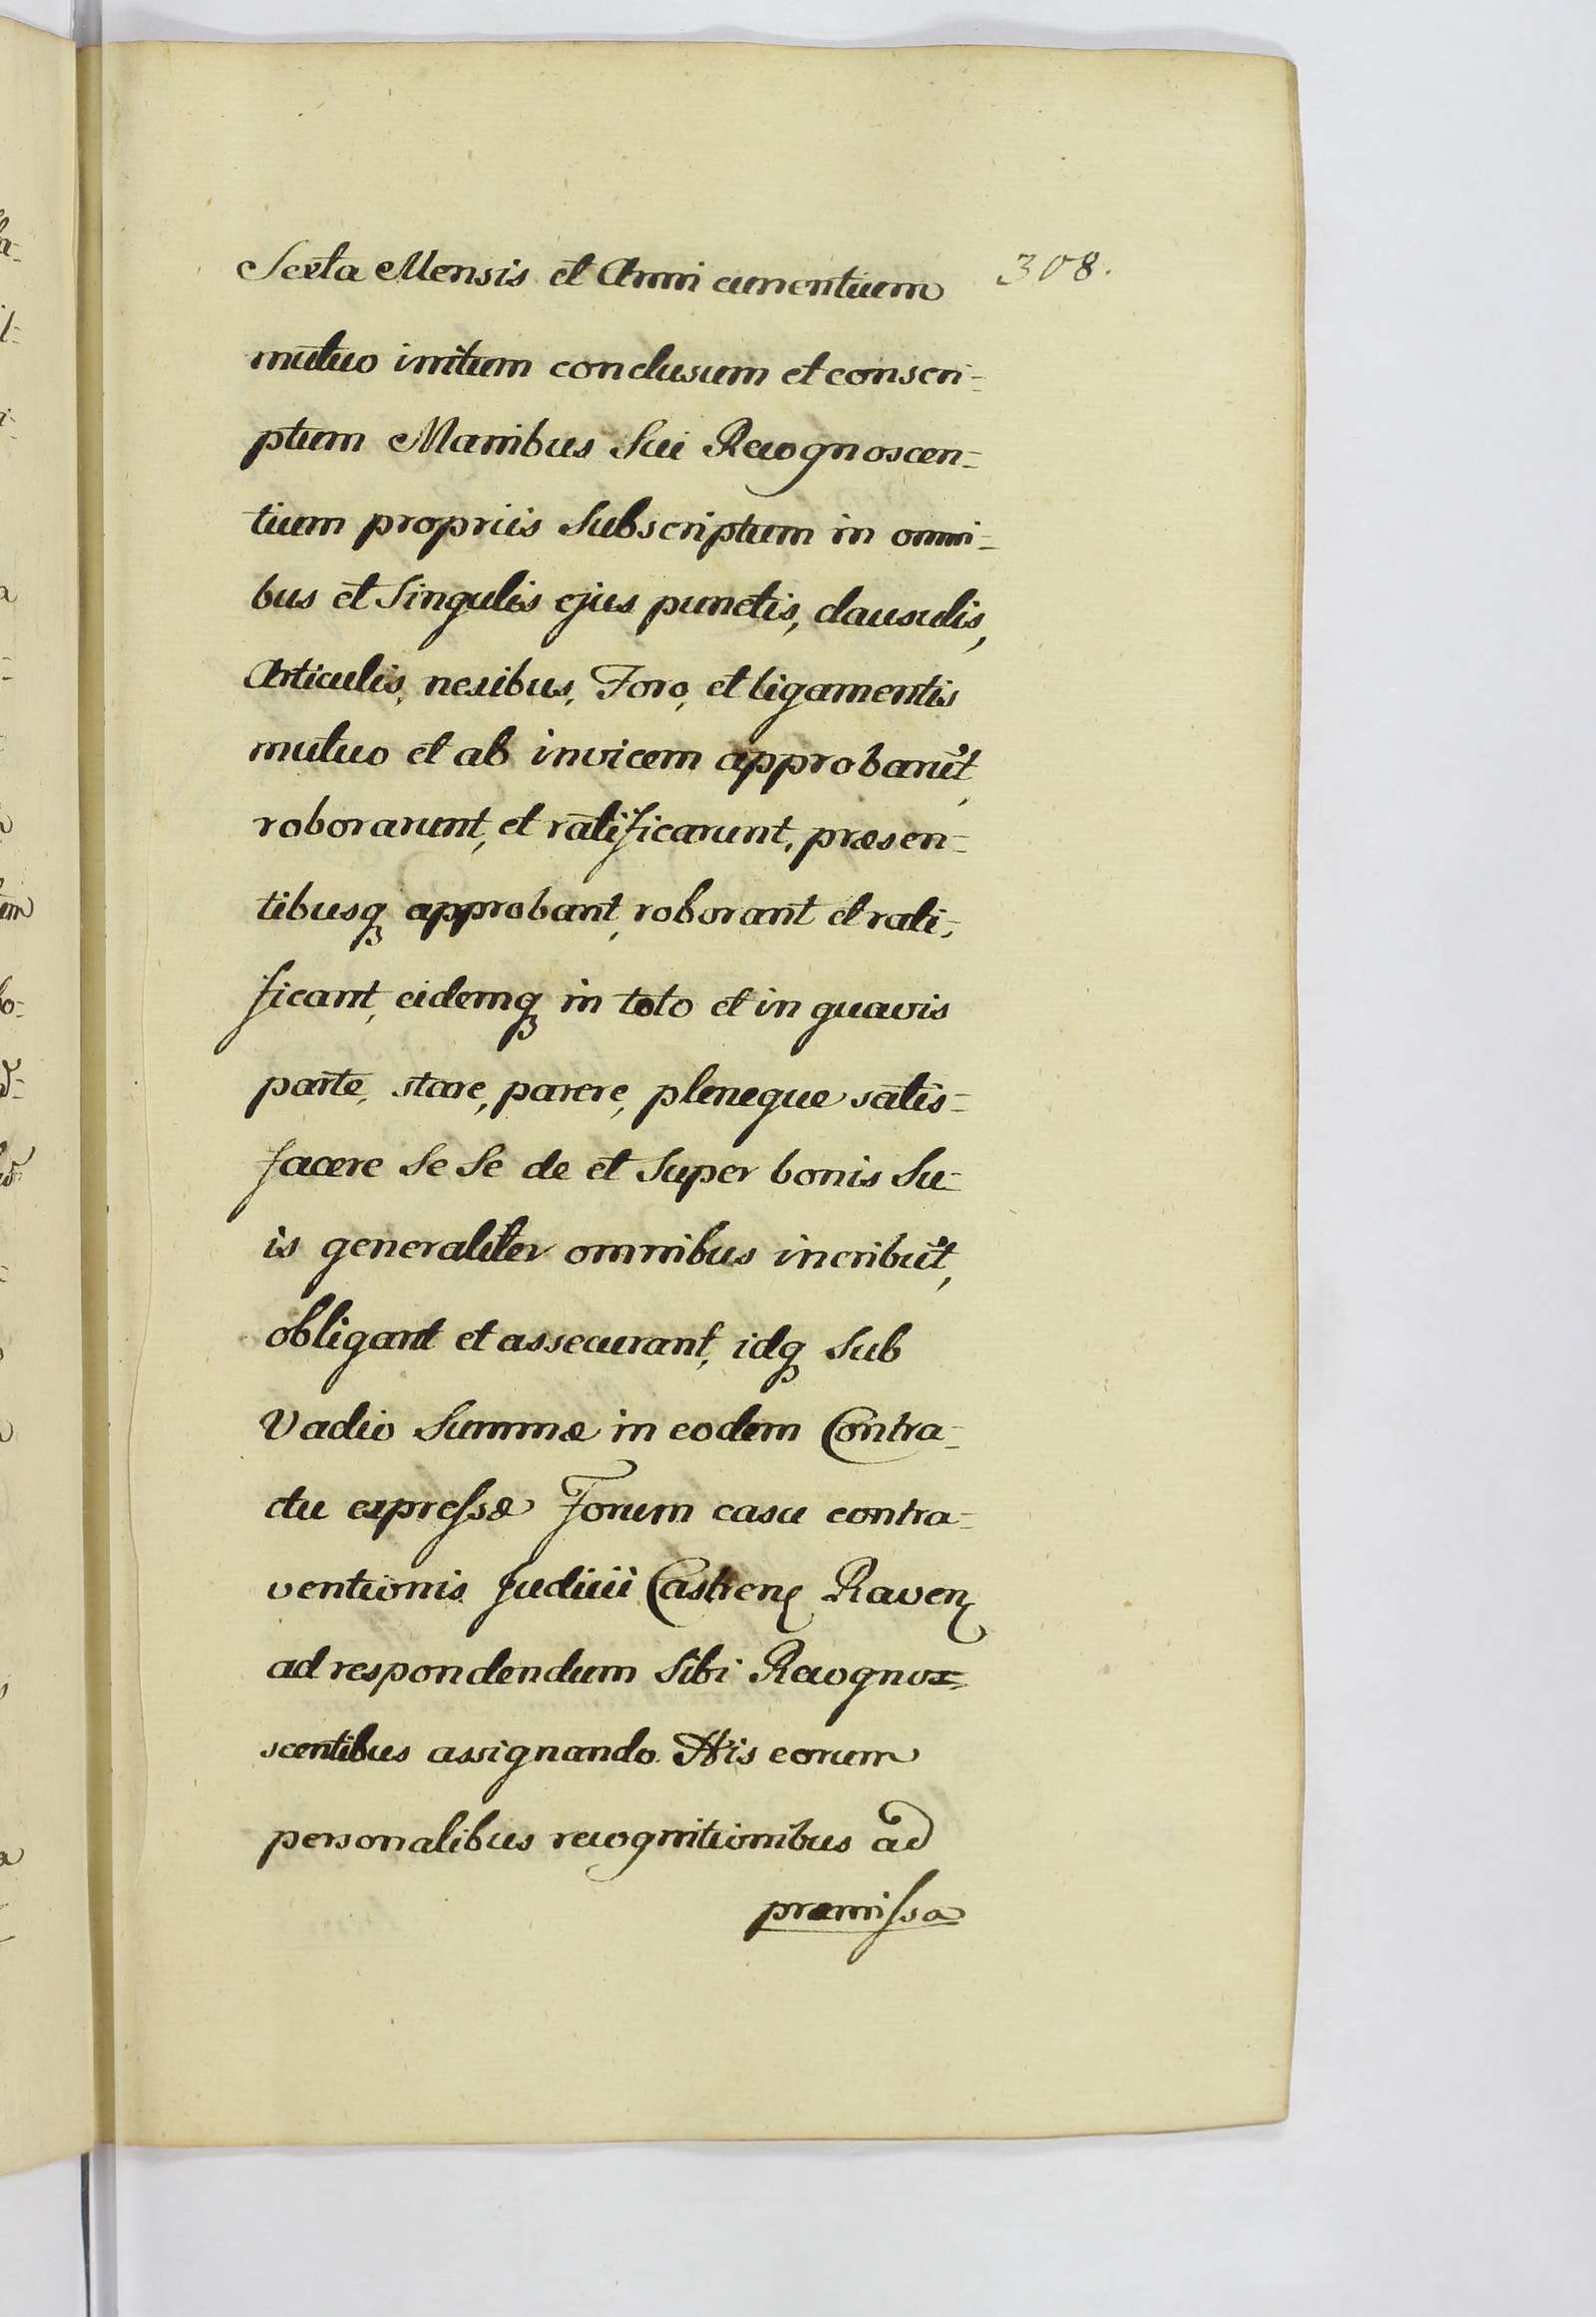 308.
Sexta Mensis et Anni currentium
mutuo initum conclusum et conscri=
ptum Manibus Sui Recognoscen=
tium propriis Subscriptum in omni=
bus et Singulis ejus punctis, clausulis,
Articulis, nexibus, Foro, et ligamentis
mutuo et ab invicem approbarūt,
roborarunt, et ratificarunt, præsen=
tibusq approbant, roborant et rati=
ficant, eidemq in toto et in quavis
parte, stare, parere, pleneque satis=
facere Se Se de et Super bonis Su=
is generaliter omnibus incribūt,
obligant et assecurant, idq Sub
Vadio Summæ in eodem Contra=
ctu expressæ Forum casu contra=
ventionis Judicii Castren Raven
ad respondendum Sibi Recogno=
scentibus assignando. His eorum
personalibus recognitionibus ad
præmissa